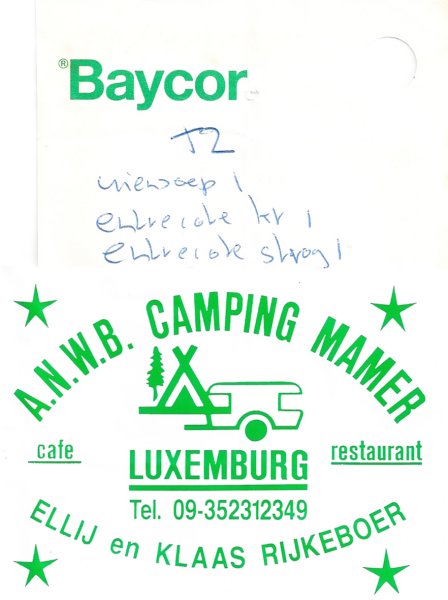 ®Baycor
T2
uiensoep 1
entrecote kr 1
entrecote strog 1
A.N.W.B. CAMPING MAMER
cafe
restaurant
LUXEMBURG
Tel. 09-352312349
ELLIJ en KLAAS RIJKEBOER